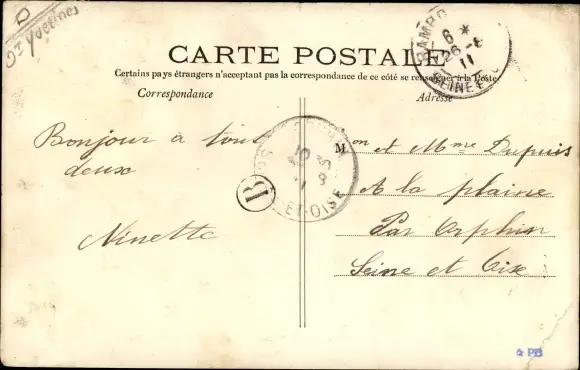 D
St Yvelines
CARTE POSTALE
Certains pays étrangers n'acceptent pas la correspondance de ce côté se renseigner à la Poste
Correspondance
Adresse
RAMBO
6 *
26 -8
11
SEINE E
Bonjour à tout
deux
Ninette
B
ET-OISE
M on et Mme Dupuis
A la plaine
Par Orphin
Seine et Oise
PB